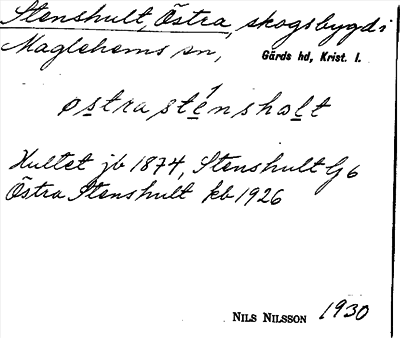 Stenshult, Östra, skogsbygd i
Maglehems sn, Gärds hd, Krist. l.
østrasténshøl̲t
Hultet jb 1874, Stenshult Gj 6
Östra Stenshult kb 1926
NILS NILSSON 1930